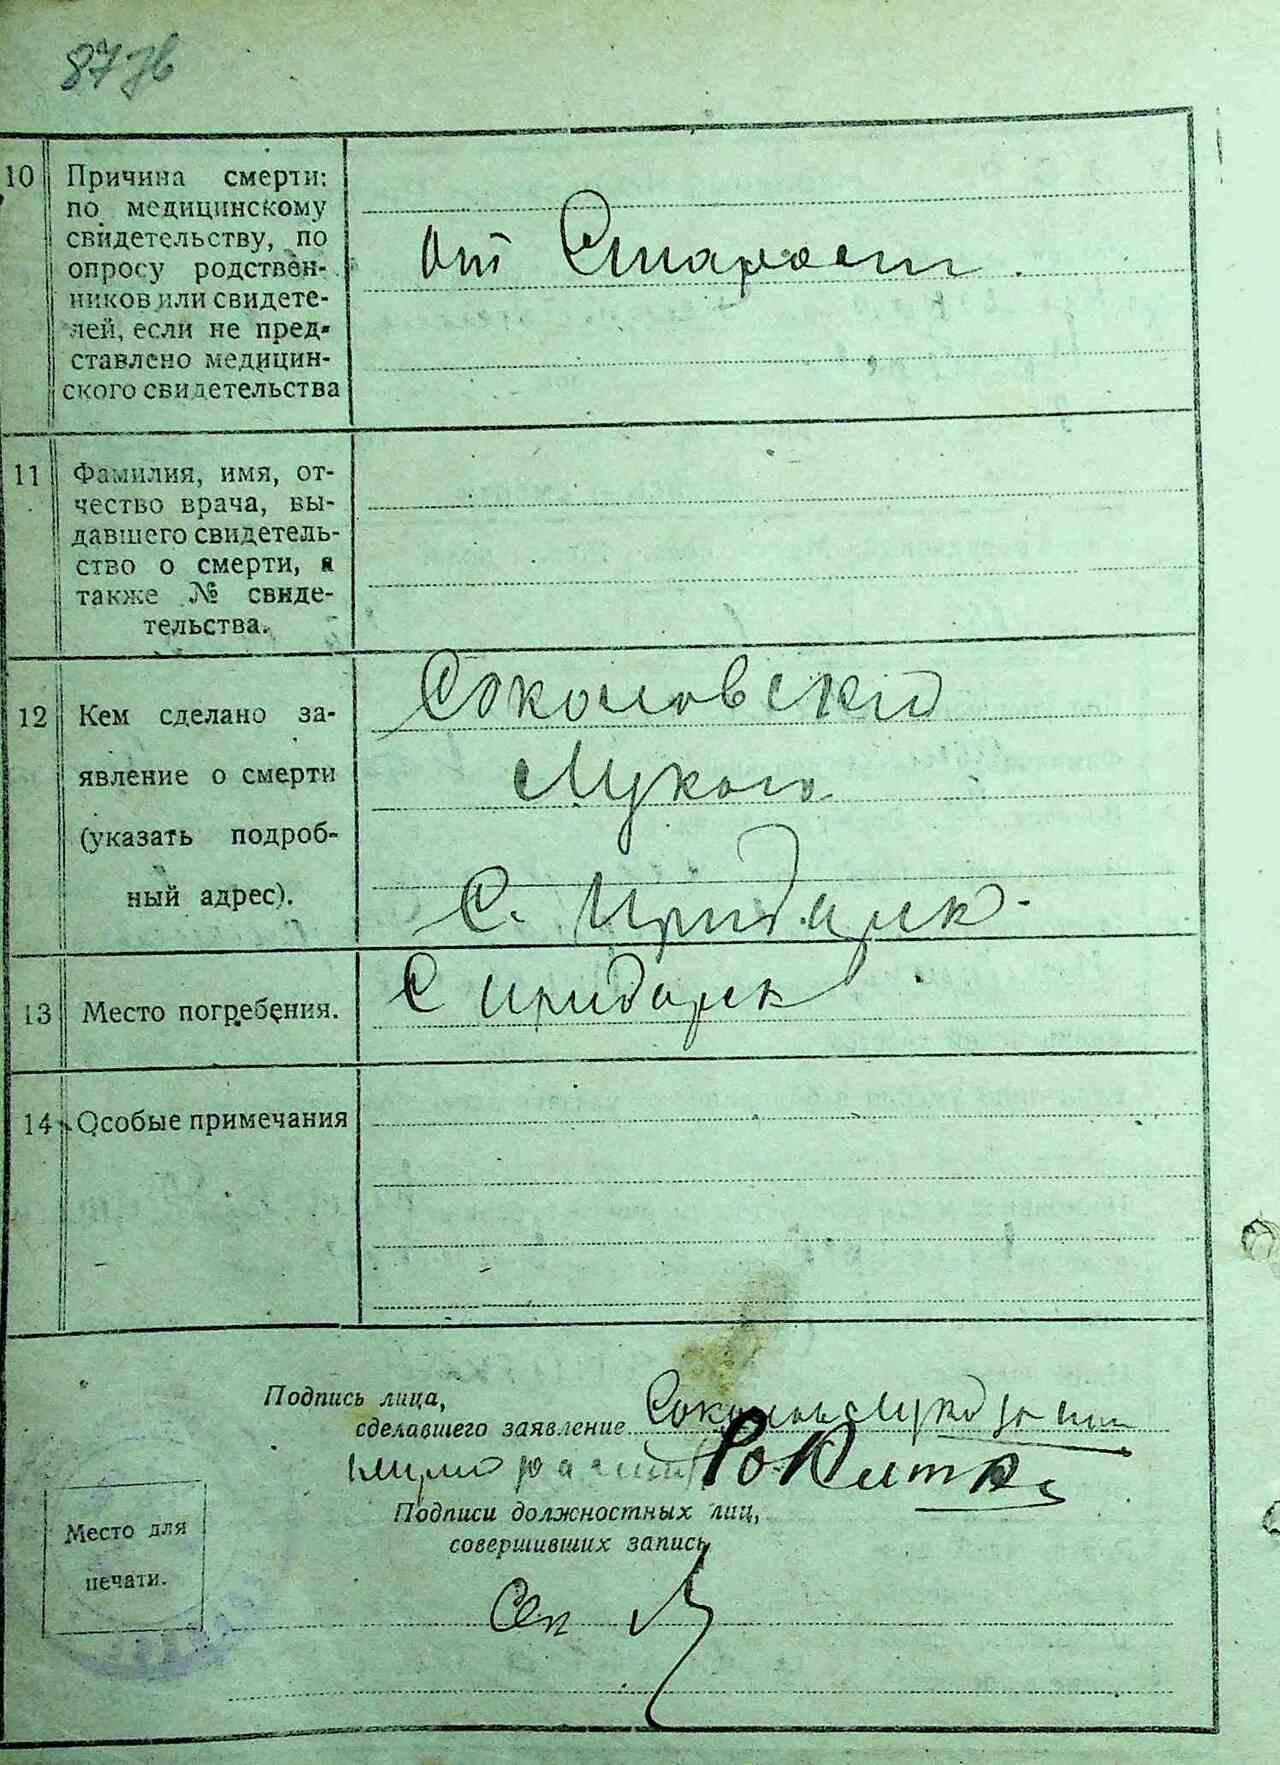 10 Причина смерти: по медицинскому свидетельству, по опросу родственников или свидетелей, если не представлено медицинского свидетельства
от Старост
11 Фамилия, имя, отчество врача, выдавшего свидетельство о смерти, а также № свидетельства.
12 Кем сделано заявление о смерти (указать подробный адрес).
Соколовский
13 Место погребения.
14 Особые примечания
Подпись лица,
сделавшего заявление
Подписи должностных лиц,
совершивших запись
Место для
печати.
Сек